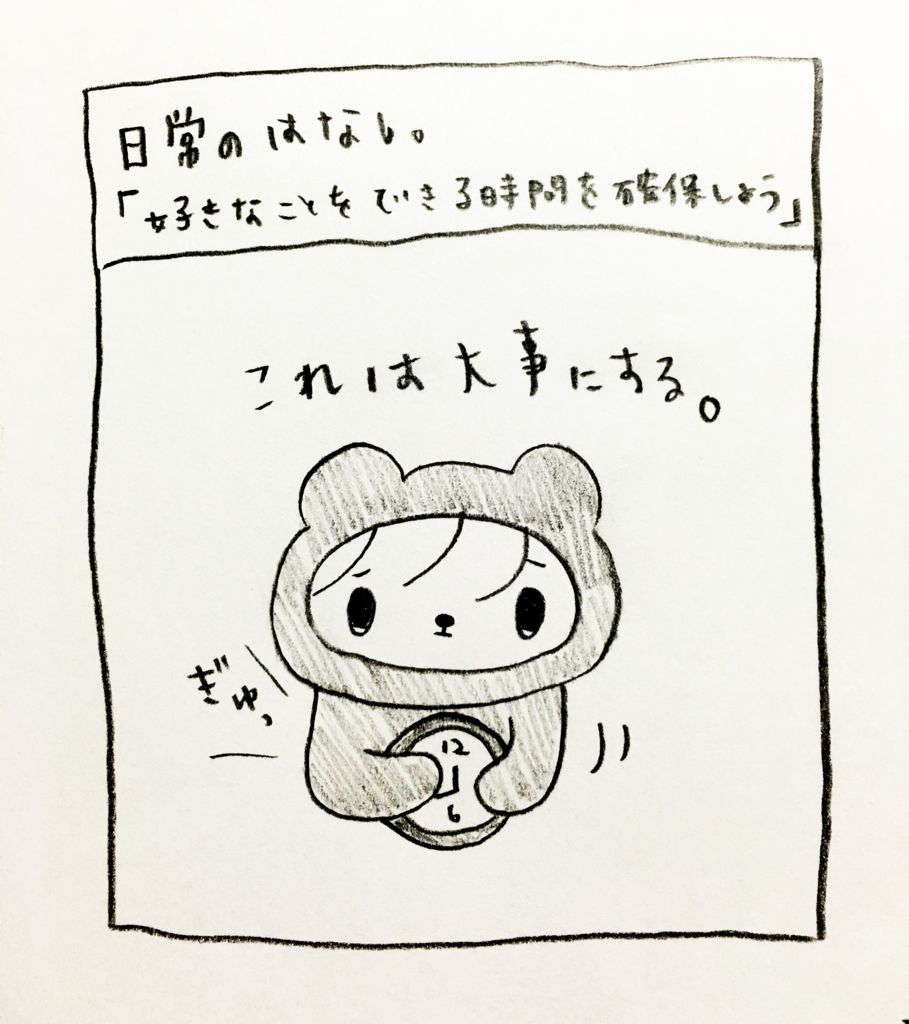 日常のはなし。
「好きなことをできる時間を確保しよう」
これは大事にする。
ぎゅっ
12
6